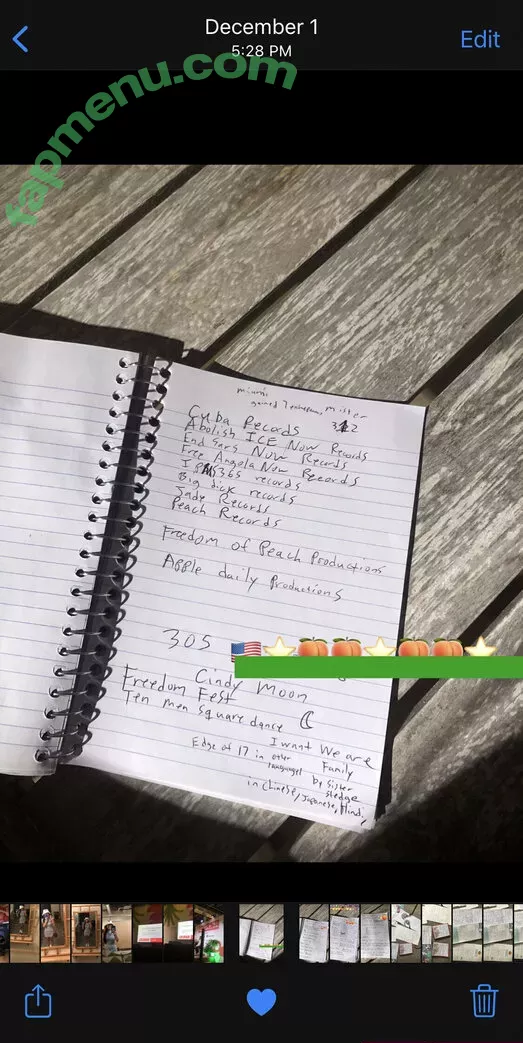 December 1
5:28 PM
Edit
fapmenu.com
miami
gained mister
Cuba Records 312
Abolish ICE Now Records
End Sars Now Records
Free Angola Now Records
365 records
Big dick records
Jade Records
Peach Records
Freedom of Peach Productions
Apple daily Productions
305
Cindy Moon
Freedom Fest
Ten men square dance
I want We are
Family
Edge of 17 in other
languages by Sister
Sledge
in Chinese, Japanese, Hindi,